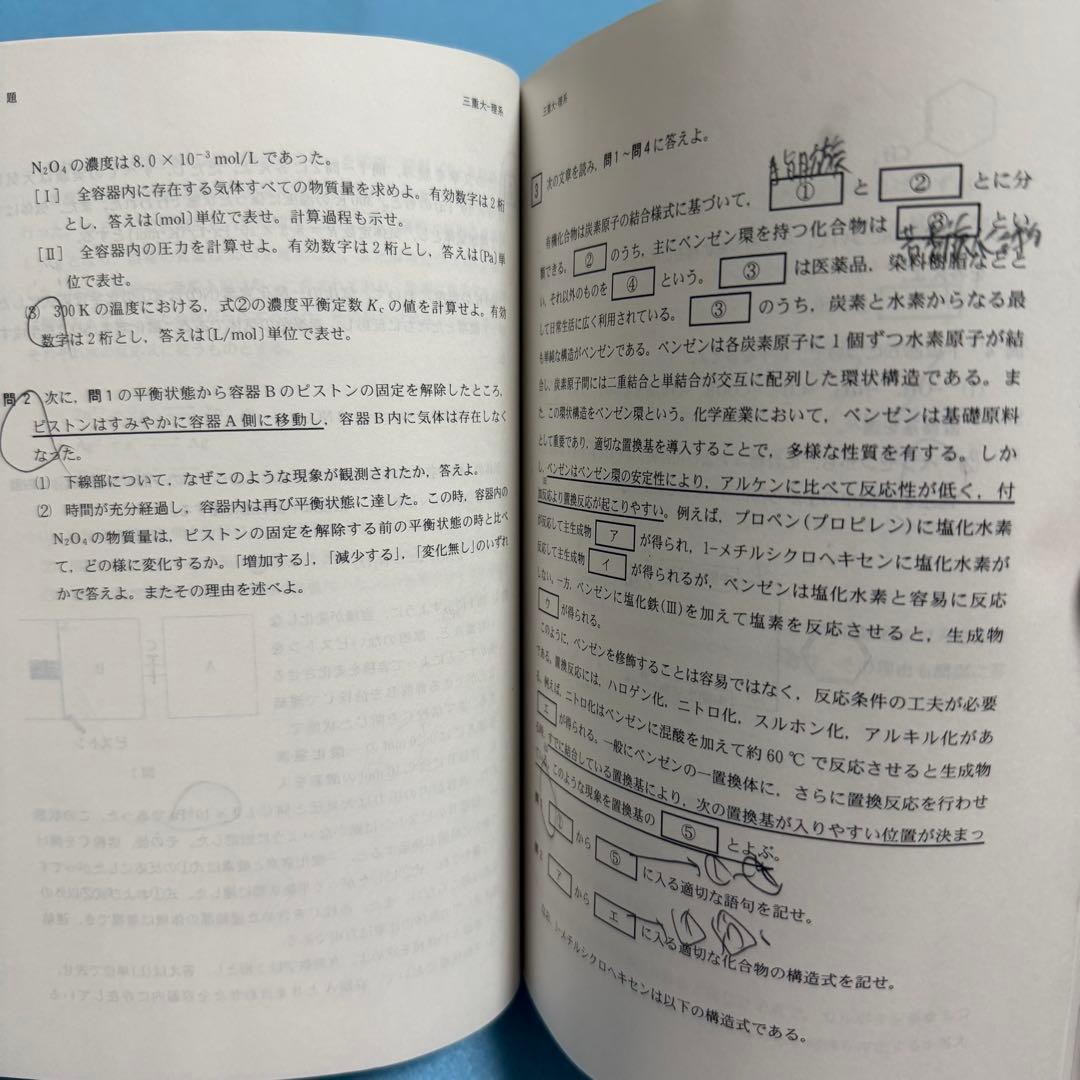 題
三重大-理系
N₂O₄の濃度は8.0 × 10⁻³ mol/L であった。
［Ⅰ］ 全容器内に存在する気体すべての物質量を求めよ。有効数字は2桁
とし，答えは〔mol〕単位で表せ。計算過程も示せ。
［Ⅱ］ 全容器内の圧力を計算せよ。有効数字は2桁とし，答えは〔Pa〕単
位で表せ。
(3) 300 K の温度における，式②の濃度平衡定数 Kc の値を計算せよ。有効
数字は2桁とし，答えは〔L/mol〕単位で表せ。
問 2 次に，問1の平衡状態から容器Bのピストンの固定を解除したところ，
ピストンはすみやかに容器A側に移動し，容器B内に気体は存在しなく
なった。
(1) 下線部について，なぜこのような現象が観測されたか，答えよ。
(2) 時間が充分経過し，容器内は再び平衡状態に達した。この時，容器内の
N₂O₄の物質量は，ピストンの固定を解除する前の平衡状態の時と比べ
て，どの様に変化するか。「増加する」，「減少する」，「変化無し」のいずれ
かで答えよ。またその理由を述べよ。
三重大-理系
3 次の文章を読み，問1～問4に答えよ。
有機化合物は炭素原子の結合様式に基づいて， ① と ② とに分
類できる。 ② のうち，主にベンゼン環を持つ化合物は ③ とい
い，それ以外のものを ④ という。 ③ は医薬品，染料樹脂などと
して日常生活に広く利用されている。 ③ のうち，炭素と水素からなる最
も単純な構造がベンゼンである。ベンゼンは各炭素原子に1個ずつ水素原子が結
合し，炭素原子間には二重結合と単結合が交互に配列した環状構造である。ま
た，この環状構造をベンゼン環という。化学産業において，ベンゼンは基礎原料
として重要であり，適切な置換基を導入することで，多様な性質を有する。しか
し，ベンゼンはベンゼン環の安定性により，アルケンに比べて反応性が低く，付
加反応より置換反応が起こりやすい。例えば，プロペン(プロピレン)に塩化水素
が反応して主生成物 ア が得られ，1-メチルシクロヘキセンに塩化水素が
反応して主生成物 イ が得られるが，ベンゼンは塩化水素と容易に反応
しない。一方，ベンゼンに塩化鉄(Ⅲ)を加えて塩素を反応させると，生成物
ウ が得られる。
このように，ベンゼンを修飾することは容易ではなく，反応条件の工夫が必要
である。置換反応には，ハロゲン化，ニトロ化，スルホン化，アルキル化があ
る。例えば，ニトロ化はベンゼンに混酸を加えて約60 ℃で反応させると生成物
エ が得られる。一般にベンゼンの一置換体に，さらに置換反応を行わせ
る時，すでに結合している置換基により，次の置換基が入りやすい位置が決まっ
ている。このような現象を置換基の ⑤ とよぶ。
問 1 ① から ⑤ に入る適切な語句を記せ。
問 2 ア から エ に入る適切な化合物の構造式を記せ。
なお，1-メチルシクロヘキセンは以下の構造式である。